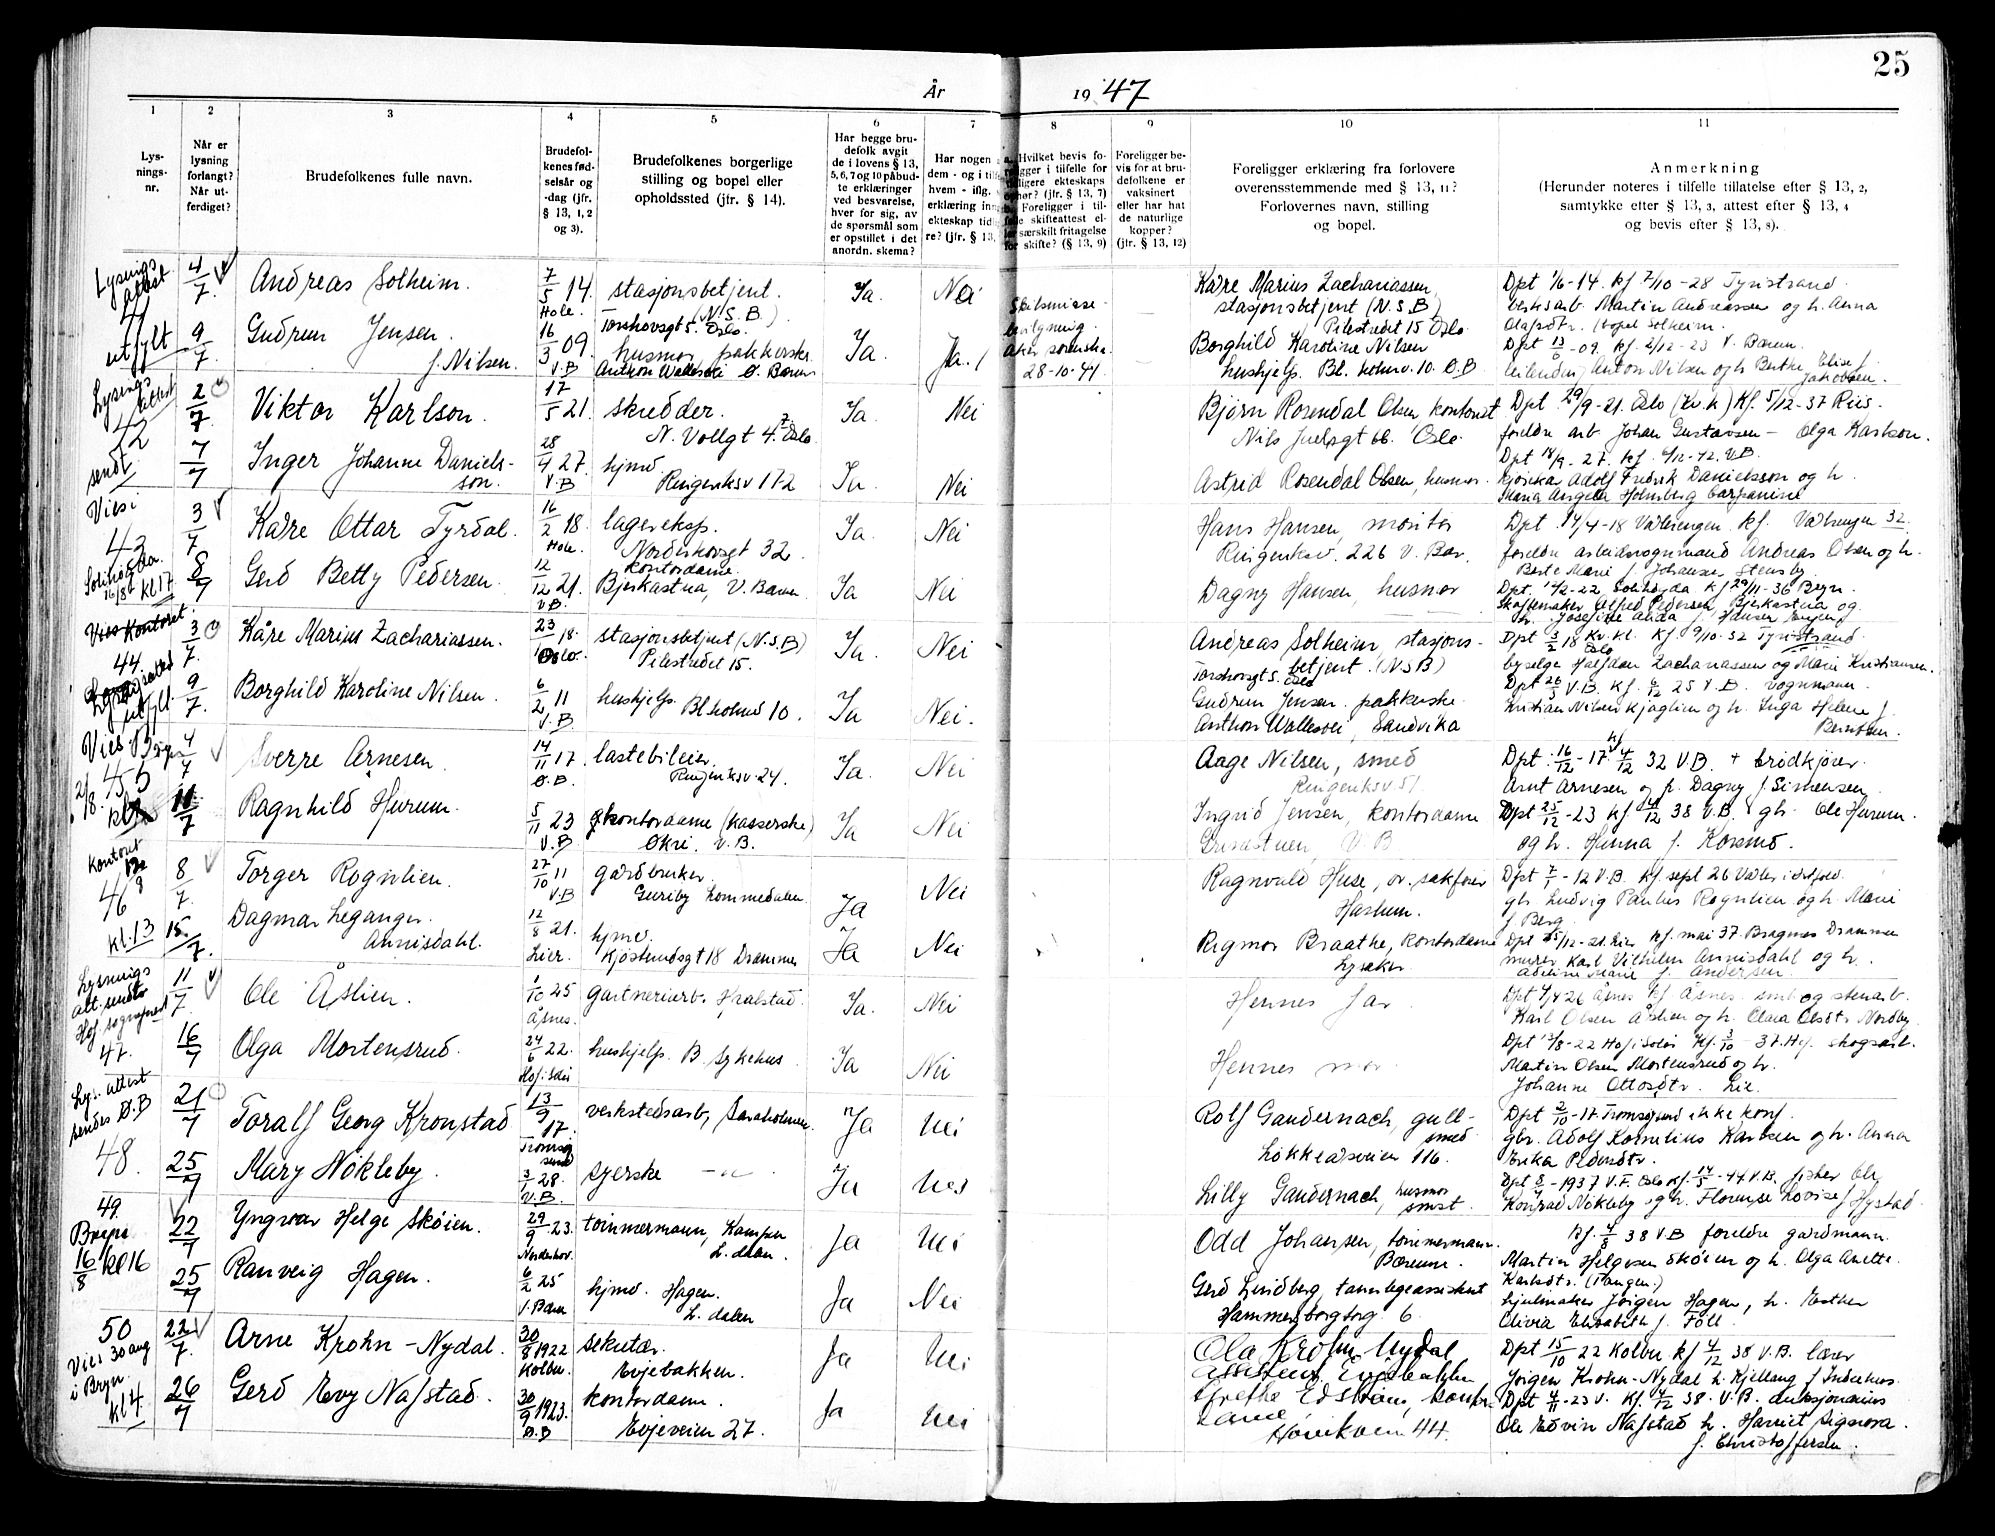 25
År 1947
1 2 3 4 5 6 7 8 9 10 11
Lys-
nings-
nr.
Når er
lysning
forlangt?
Når ut-
ferdiget?
Brudefolkenes fulle navn.
Brudefol-
kenes fød-
selsår og
-dag (jfr.
§ 13, 1, 2
og 3).
Brudefolkenes borgerlige
stilling og bopel eller
opholdssted (jfr. § 14).
Har begge bru-
defolk avgit
de i lovens § 13,
5, 6, 7 og 10 påbud-
te erklæringer
ved besvarelse,
hver for sig, av
de spørsmål som
er opstillet i det
anordn. skema?
Har nogen
dem - og i
hvem - iflg.
erklæring
ekteskap
re? (jfr. § 13,
Hvilket bevis fo-
religger i tilfelle for
tidligere ekteskaps
ophør? (jfr. § 13, 7)
Foreligger i til-
felle skifteattest el-
særskilt fritagelse
for skifte? (§ 13, 9)
Foreligger be-
vis for at bru-
defolkene er
vaksinert
eller har hat
de naturlige
kopper?
(jfr. § 13, 12)
Foreligger erklæring fra forlovere
overensstemmende med § 13, 11?
Forlovernes navn, stilling
og bopel.
Anmerkning
(Herunder noteres i tilfelle tillatelse efter § 13, 2,
samtykke efter § 13, 3, attest efter § 13, 4
og bevis efter § 13, 8).
Lysnings
attest
41
utfylt
4/7 Andreas Solheim. 7/5 14. Hole. stasjonsbetjent. (N.S.B.) Torshovsgt 5. Oslo. Ja. Nei Kåre Marius Zachariassen Dpt 1/6-14. kf 7/10-28 Tyristrand
stasjonsbetjent (N.S.B) verksarb. Martin Andreassen og h. Anna
Pilestredet 15 Oslo Olafsdtr. (bopel Solheim.
9/7 Gudrun Jensen f. Nilsen. 16/3 09. V.B husmor, pakkerske Anthon Walles vei Ø. Bærum Ja. Ja. Skilsmisse-
bevilgning.
28-10-41
Borghild Karoline Nilsen Dpt 13/6-09. kf. 2/12-23 V. Bærum.
hushjelp. Bl. holmv. 10. Ø.B Anton Nilsen og h. Berthe Elise f.
Jakobsen.
Lysnings
attest
42
sendt
2/7 Viktor Karlson. 17/5 21. skredder. N. Vollgt 4. Oslo. Ja Nei Bjørn Rosendal Olsen kontorist Dpt. 29/9-21. Oslo Kf. 5/12-37 Riis.
Nils Juelsgt 66. Oslo. foreldre arb. Johan Gustavsen - Olga Karlson.
7/7 Inger Johanne Daniels-
son. 28/4 27. V.B hjmv. Ringeriksv 172 Ja. Nei Astrid Rosendal Olsen, husmor. Dpt 18/9-27. kf. 4/12-42. V.B
Adolf Fredrik Danielsson og h.
Maria Angela Holmberg
Viesi
43
16/8 kl 17
3/7 Kåre Ottar Tyrdal. 16/2 18. Hole. lagereksp. Nordskovsgt 32 Ja. Nei Hans Hansen, montør Dpt. 14/4-18 Vålerengen. kf. Vålerengen 32.
Ringeriksv. 226 V. Bær. foreldre arbeidsvognmand Andreas Olsen og h.
Berte Marie f. Johansen
8/7 Gerd Betty Pedersen. 12/12 21. V.B. kontordame. Bjerkastua, V. Bærum Ja Nei Dagny Hansen, husmor Dpt. 12/2-22 Solihøgda kf 29/11-36 Bryn.
Alfred Pedersen, Bjerkastua og
h. Josefine f. Hansen
Vies Kontoret.
44.
utfylt
3/7. Kåre Marius Zachariassen. 23/1 18. Oslo. stasjonsbetjent (N.S.B) Pilestredet 15. Ja. Nei Andreas Solheim, stasjons- Dpt 3/2 18 kf. 9/10-32 Tyristrand.
betjent. (N.S.B) Torshovsgt 5. Oslo Halfdan Zachariassen og Marie Kristiansen.
9/7. Borghild Karoline Nilsen. 6/2 11 V.B hushjelp. Bl.holmv 10. Ja Nei. Gudrun Jensen. pakkerske. Dpt 26/3 V.B. kf. 6/12 25 V.B. vognmann
Anthon Wallesvei, Sandvika Kristian Nilsen Kjaglien og h. Inga Helene f.
Berntsen.
Vies Bryn
2/8. 45
4/7 Sverre Arnesen. 14/11 17. Ø.B. lastebileier, Ringeriksv. 24. Ja. Nei Aage Nilsen, smed Dpt. 16/12-17 kf 4/12 32 V.B. + brødkjører
Ringeriksv 51 Arnt Arnesen og h. Dagny f. Simensen
11/7 Ragnhild Hurum. 5/11 23 V.B. kontordame (kasserske) Økri. V.B. Ja Nei Ingrid Jensen, kontordame Dpt 25/12-23 kf 4/12 38 V.B. gbr. Ole Hurum.
V.B og h. Hanna f. Korsmo.
Kontoret
46
kl. 13
8/7. Torger Rognlien. 27/10 11 V.B gårdbruker. Guriby Lommedalen Ja Nei Ragnvald Huse, ov. sakfører Dpt 7/1-12 V.B. kf. sept 26 Våler i Østfold.
Haslum. gbr. Ludvig Paulus Rognlien og h. Marie
f. Berg
15/7. Dagmar Leganger. Annisdahl. 12/8 21. Lier. hjmv. Kjøsterudsgt 18 Drammen Ja Nei Rigmor Braathe, kontordame Dpt 25/12-21. Lier kf. mai 37. Bragnes Drammen
Lysaker. murer Karl Vilhelm Annisdahl og h.
Adeline Marie f. Andersen.
Lysnings
att. sendt
Hof sogneprest
47.
11/7 Ole Åslien. 1/10 25 Åsnes. gartneriarb. Kralstad. Ja. Nei Hennes far Dpt 4/4 26 Åsnes kf. Åsnes. små og stenarb.
Karl Olsen Åslien og h. Clara Olsdtr Nordby
16/7 Olga Mortensrud. 24/6 22. Hof i Solør hushjelp. B. sykehus Ja Nei Hennes mor. Dpt 13/8-22 Hof i Solør Kf. 3/10-37. Hof. skogsarb.
Martin Olsen Mortensrud og h.
Johanne Ottosdtr. Lie.
Lys. attest
sendes Ø.B
48.
21/7 Toralf Georg Kronstad 13/9 17 Tromsø
sund verkstedsarb, Saraholmen. Ja Nei Rolf Gandernach, gull-
smed Løkkeåsveien 116. Dpt 2/10-17. Tromsøsund ikke konf.
gbr. Adolf Kornelius Karlsen og h. Anna
Erika Pedersdtr.
25/7 Mary Nøkleby. 3/1 28. V.B. syerske -"- Ja Nei Lilly Gandernach, husmor Dpt 3/5-1937 V.F. Oslo kf. 14/5-44 V.B. fisker Ole
smst. Konrad Nøkleby og h. Florense Lovise f. Hystad
49.
Bryn
16/8 kl 16
22/7 Yngvar Helge Skøien. 29/9 23. Norderhov. tømmermann, Kampen L. dalen. Ja Nei Odd Johansen, tømmermann. kf. 4/8 38 V.B foreldre gårdmann.
Bærum. Martin Helgesen Skøien og h. Olga Anette
Karlsdtr. (Tangen.)
25/7 Ranveig Hagen. 6/2 25 V. Bær hjmv. Hagen. L. dalen Ja Nei Gerd Lindberg, tannlegeassistent hjulmaker Jørgen Hagen, h. Esther
Hammersborgtorg 6. Olivia Elisabeth f. Foll.
50
Vies 30 aug
i Bryn.
kl 4.
22/7. Arne Krohn-Nydal. 30/8 1922 Kolbu. sekretær. Evjebakken. Ja Nei Ola Krohn Nydal Dpt 15/10 22 Kolbu kf 4/12 38 V.B. lærer
assistent Evjebakken Jørgen Krohn-Nydal h. Kjellaug f Inderhus.
26/7 Gerd Evy Nafstad. 30/9 1923. Ø.B kontordame. Evjeveien 27. Ja Nei Grethe Edstrøm, kontor- Dpt 4/11-23 V. kf. 4/12 38. V.B.
dame, Høvikveien 44. Ole Edvin Nafstad h. Harriet Signora
f. Christoffersen.